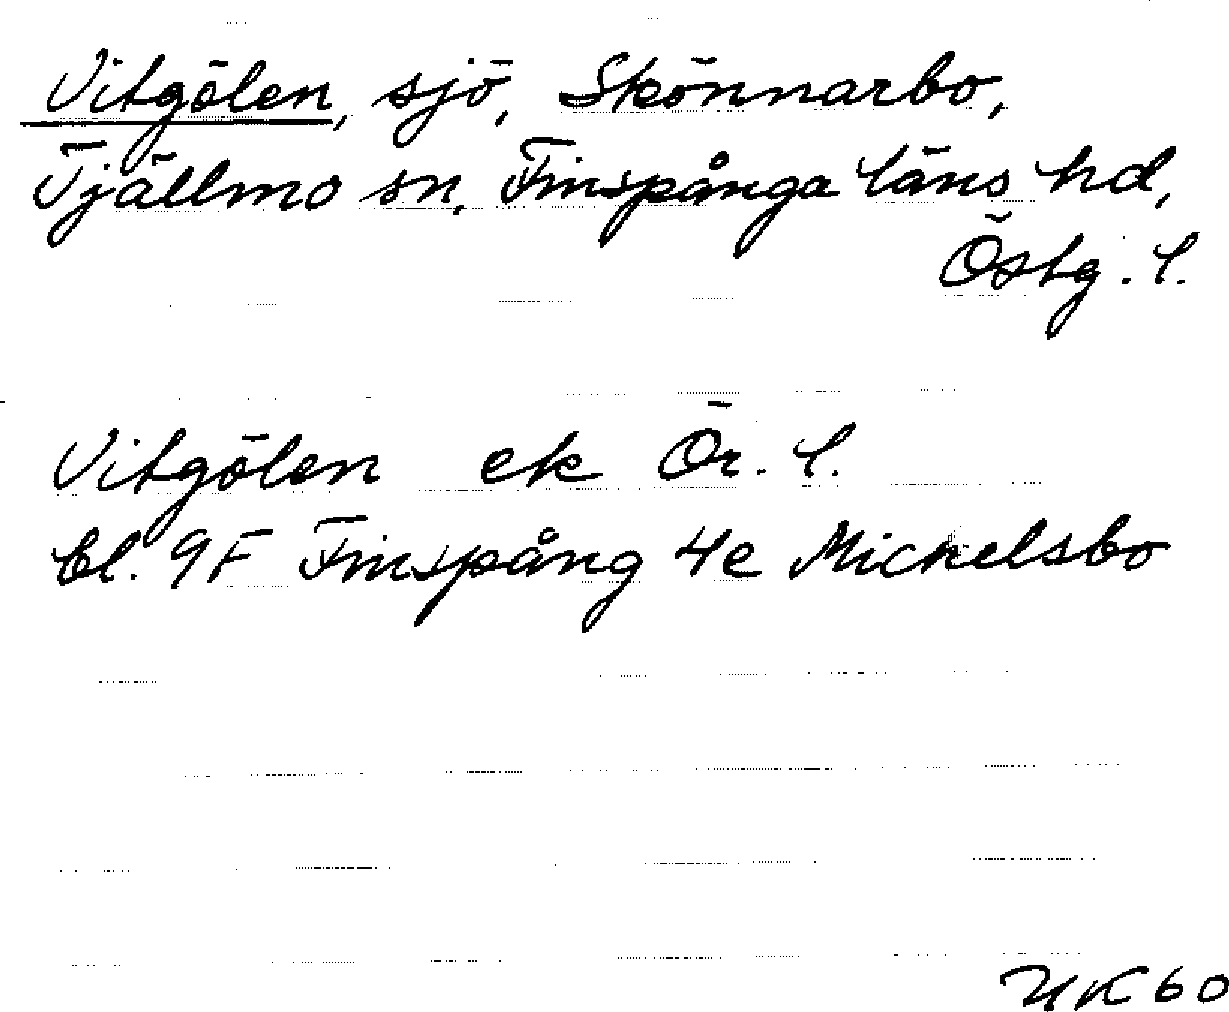 Vitgölen, sjö, Skönnarbo,
Tjällmo sn, Finspånga läns hd,
Östg. l.
Vitgölen ek Ör. l.
bl. 9F Finspång 4e Mickelsbo
UK60